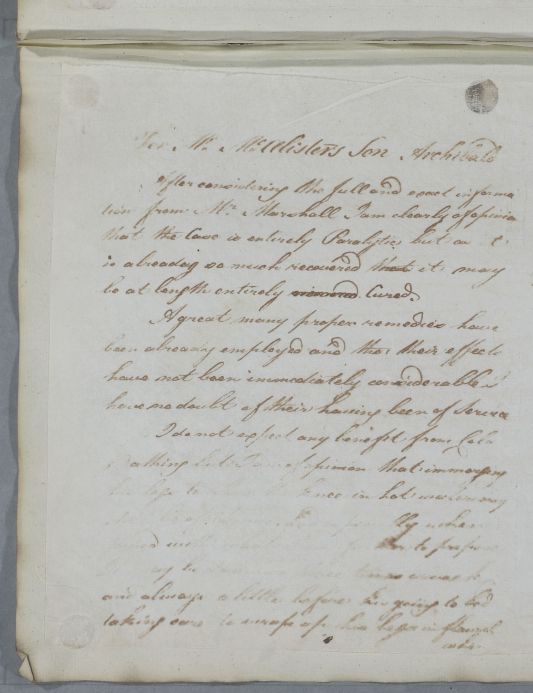 For Mr. McAlisters Son Archibald
After considering the full and exact informa
tion from Mr. Marshall I am clearly of opinion
that the Case is entirely Paralytic, but as
is already so much recovered that it may
be at length entirely removed Cured.
A great many proper remedies have
been already employed and tho their effects
have not been immediately considerable I
have no doubt of their having been of Service
I do not expect any benefit from Cold
Bathing but I am of opinion that immersing
his legs to the knee in hot water may
ly when
to prepare
times a week
and always a little before his going to bed
taking care to wrap up his legs in flannel